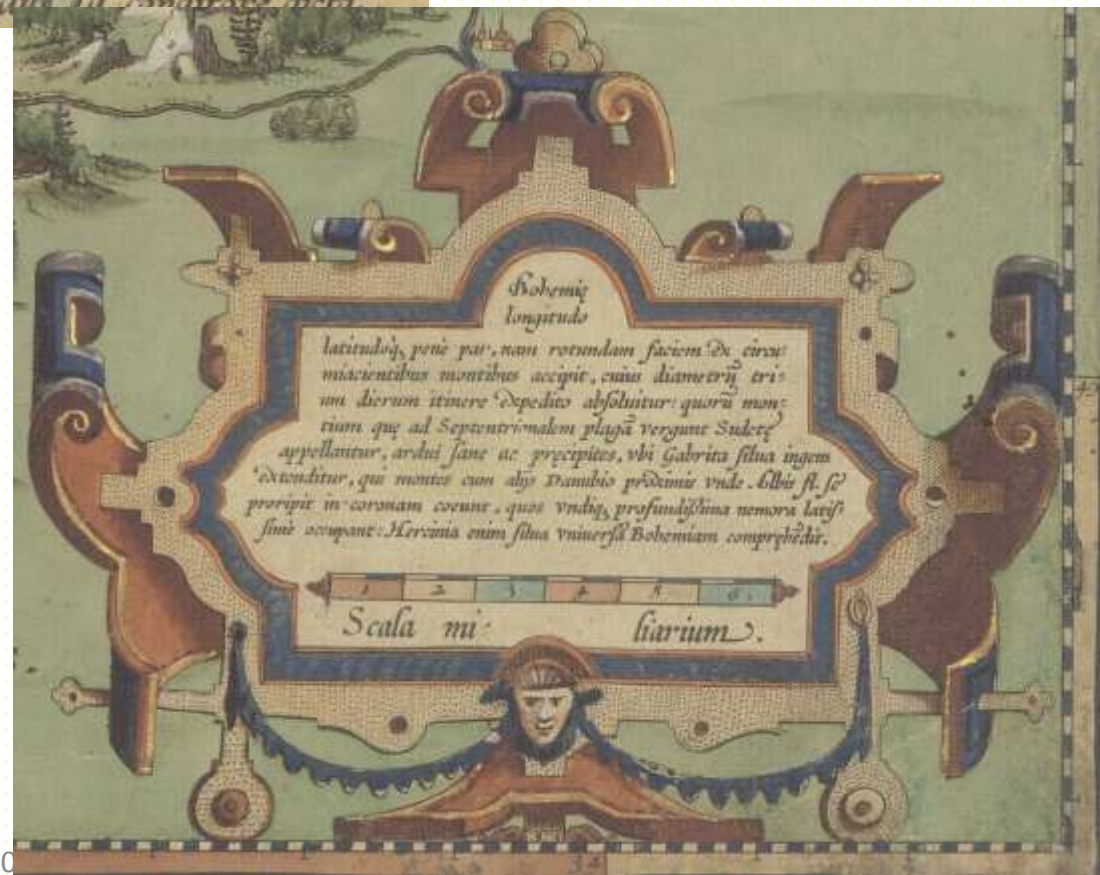 Bohemię
longitudo
latitudoq, penè par, nam rotundam faciem ex circu-
miacientibus montibus accipit, cuius diametrū tri-
um dierum itinere expedito absoluitur: quorū mon-
tium quę ad Septentrionalem plagā vergunt Sudetę
appellantur, ardui sane ac pręcipites, vbi Gabrita silua ingens
extenditur, qui montes cum alijs Danubio proximis vnde Albis fl. se
proripit in coronam coeunt, quos vndiq, profundissima nemora latis-
sime occupant: Hercinia enim silua vniuersā Bohemiam compręhēdit.
1 2 3 4 5 6
Scala mi- liarium.
34